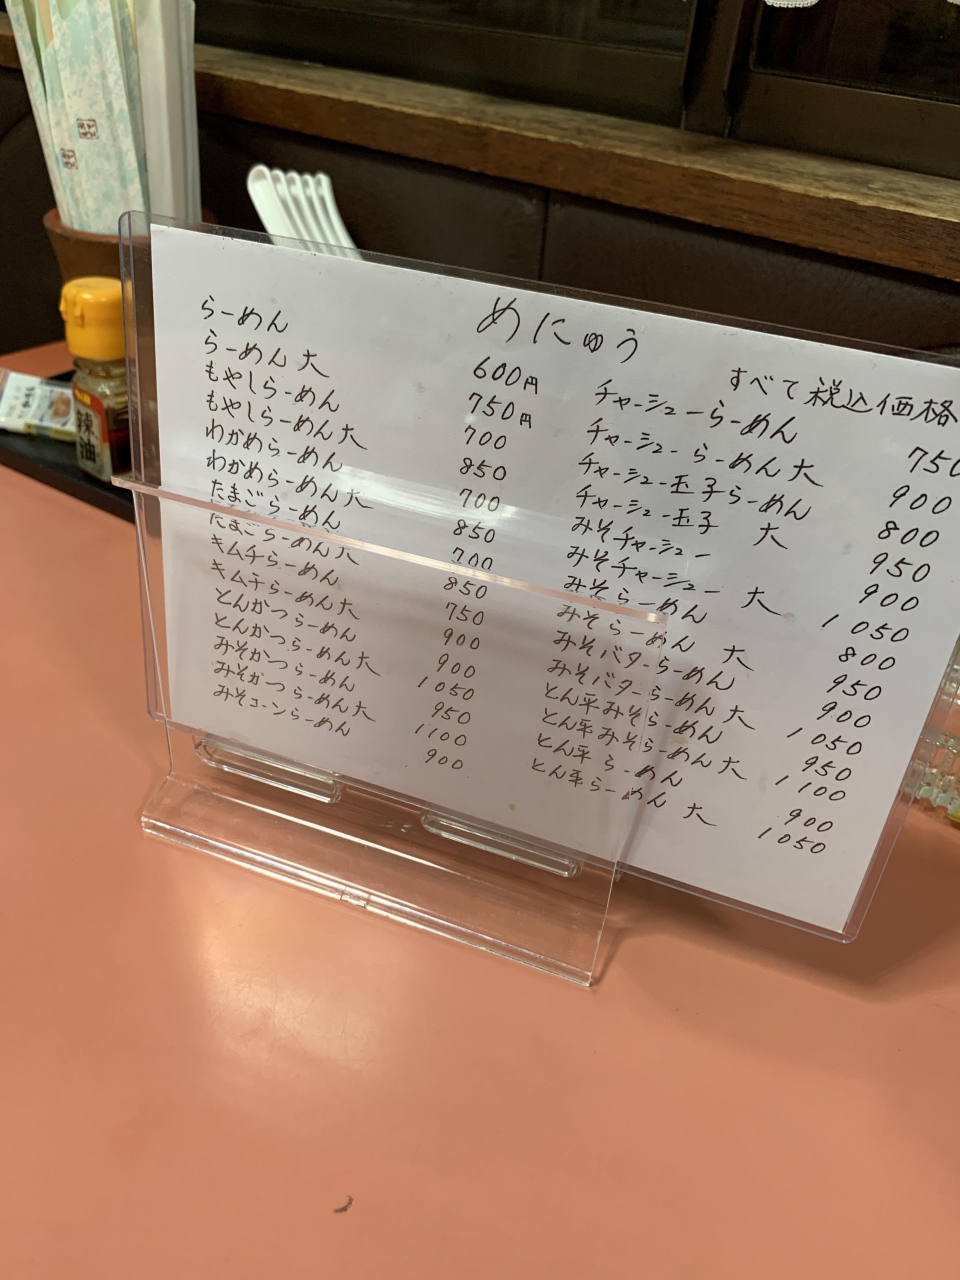 めにゅう
すべて税込価格
らーめん 600円
らーめん 大 750円
もやしらーめん 700
もやしらーめん大 850
わかめらーめん 700
わかめらーめん大 850
たまごらーめん 700
たまごらーめん大 850
キムチらーめん 750
キムチらーめん大 900
とんかつらーめん 900
とんかつらーめん大 1050
みそかつらーめん 950
みそかつらーめん大 1100
みそコーンらーめん 900
チャーシューらーめん 750
チャーシューらーめん大 900
チャーシュー玉子らーめん 800
チャーシュー玉子 大 950
みそチャーシュー 900
みそチャーシュー 大 1050
みそらーめん 800
みそらーめん 大 950
みそバターらーめん 900
みそバターらーめん大 1050
とん平みそらーめん 950
とん平みそらーめん大 1100
とん平らーめん 900
とん平らーめん 大 1050
辣油